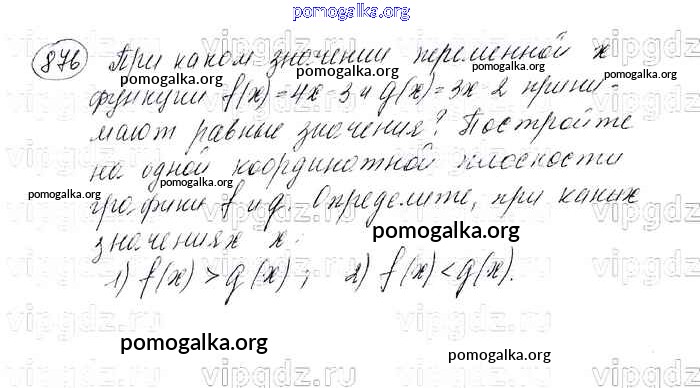 pomogalka.org
876 При каком значении переменной x
функции f(x)=4x-3 и g(x)=3x-2 прини-
мают равные значения? Постройте
на одной координатной плоскости
графики f и g. Определите, при каких
значениях x:
1) f(x) > g(x); 2) f(x) < g(x).
pomogalka.org
pomogalka.org
pomogalka.org
pomogalka.org
pomogalka.org
pomogalka.org
pomogalka.org
vipgdz.ru